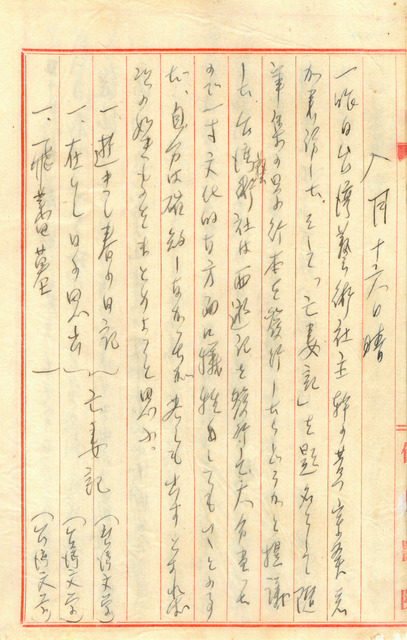 八月十六日 晴
一昨日台湾藝術社主幹の黄宗葵君
が来訪した。そして「亡妻記」を題名として随
筆集の単行本を發行したらどうかと提議
した。台湾藝術社は西遊記を發行して大分
ので一寸文化的な方面に犠牲してもいゝとのこと
だ。自分は確約しなかったが若しも出すとすれば
次の如きものをまとめようと思ふ。
一、逝きし春の日記 （台湾文学）
一、在りし日の思出 亡妻記 （台湾文学）
一、飛蕃墓 （台湾文学）